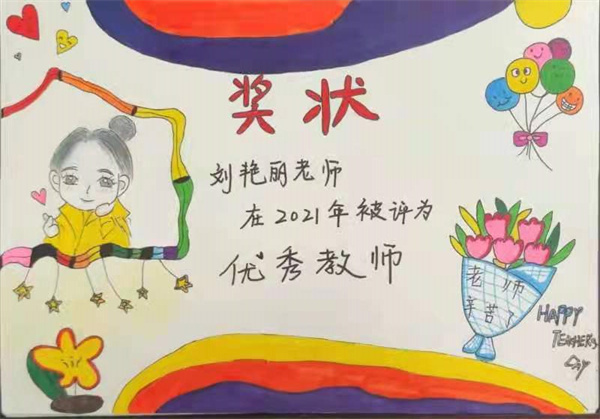 奖状
刘艳丽老师
在2021年被评为
优秀教师
老师
辛苦了
HAPPY
TEACHER'S
DAY